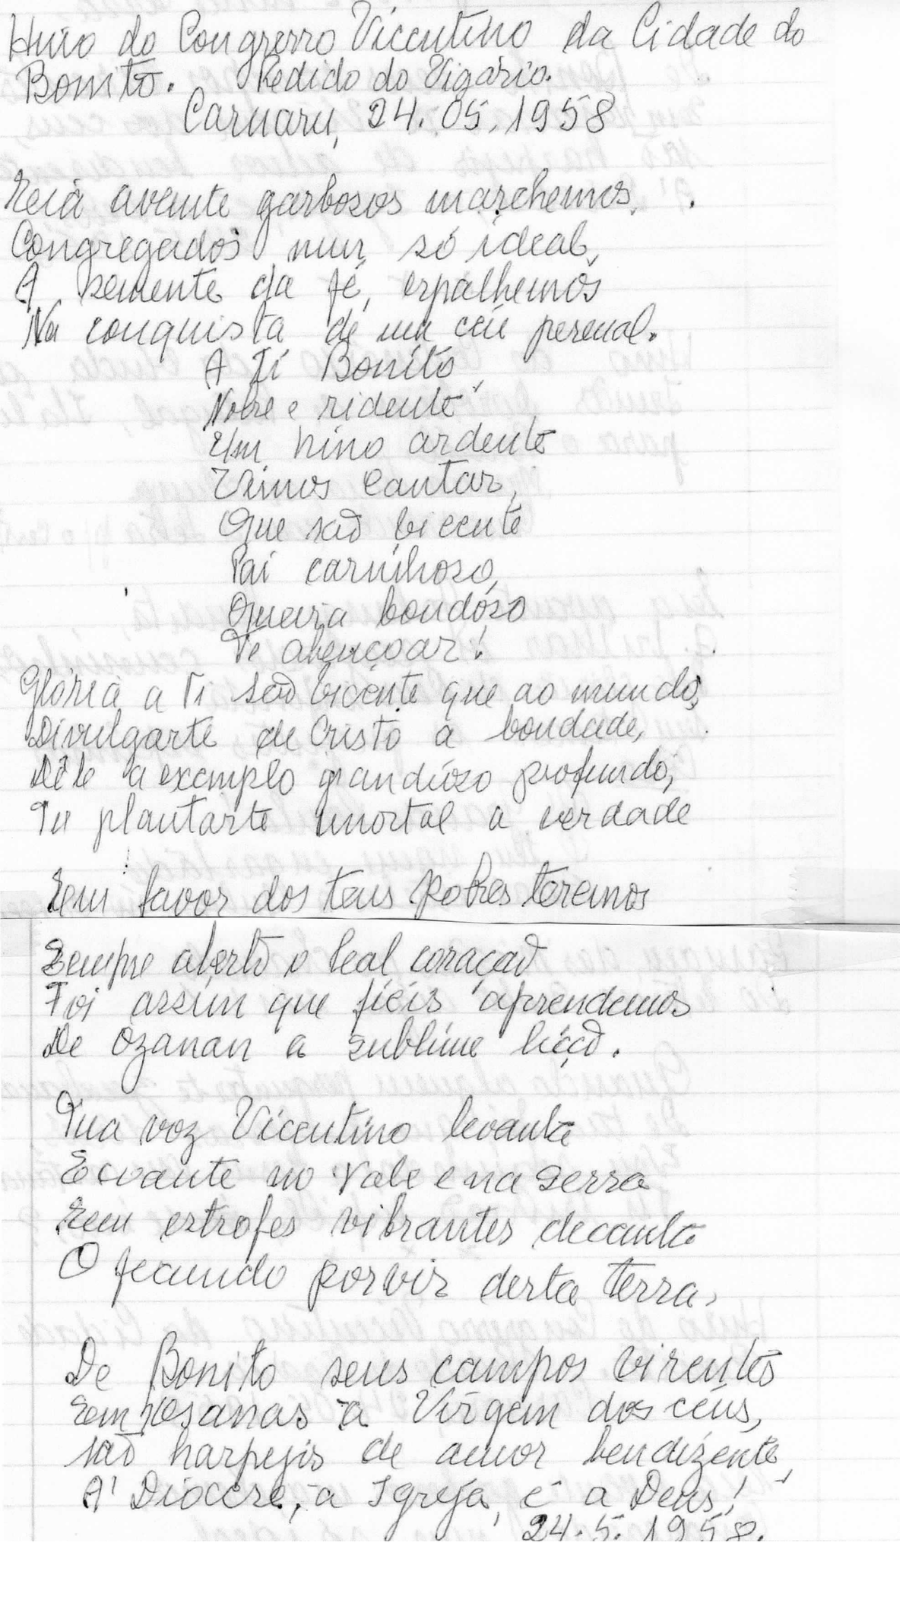 Hino do Congresso Vicentino da Cidade do
Bonito. Pedido do Vigário.
Caruaru, 24.05.1958
Eeia avante garbosos marchemos,
Congregados num só ideal,
A semente da fé, espalhemos
Na conquista de um céu perenal.
A Ti Bonito
Nobre e ridente
Um hino ardente
Vamos cantar,
Que saõ Vicente
Pai carinhoso,
Queira bondóso
Te abençoar!
Glória a Ti saõ Vicente que ao mundo,
Divulgaste de Cristo a bondade,
Dêle a exemplo grandioso profundo,
Tu plantaste imortal a verdade
Em favor dos teus pobres teremos
Sempre aberto o leal coraçaõ
Foi assim que fiéis aprendemos
De Ozanan a sublime liçaõ.
Tua voz Vicentino levanta
Ecoante no vale e na serra
Em estrofes vibrantes decanta
O fecundo porvir desta terra.
De Bonito seus campos virentes
Em hosanas à Virgem dos céus,
saõ harpejis de amor bendizente,
A' Diocese, à Igreja, e a Deus!
24.5.1958.